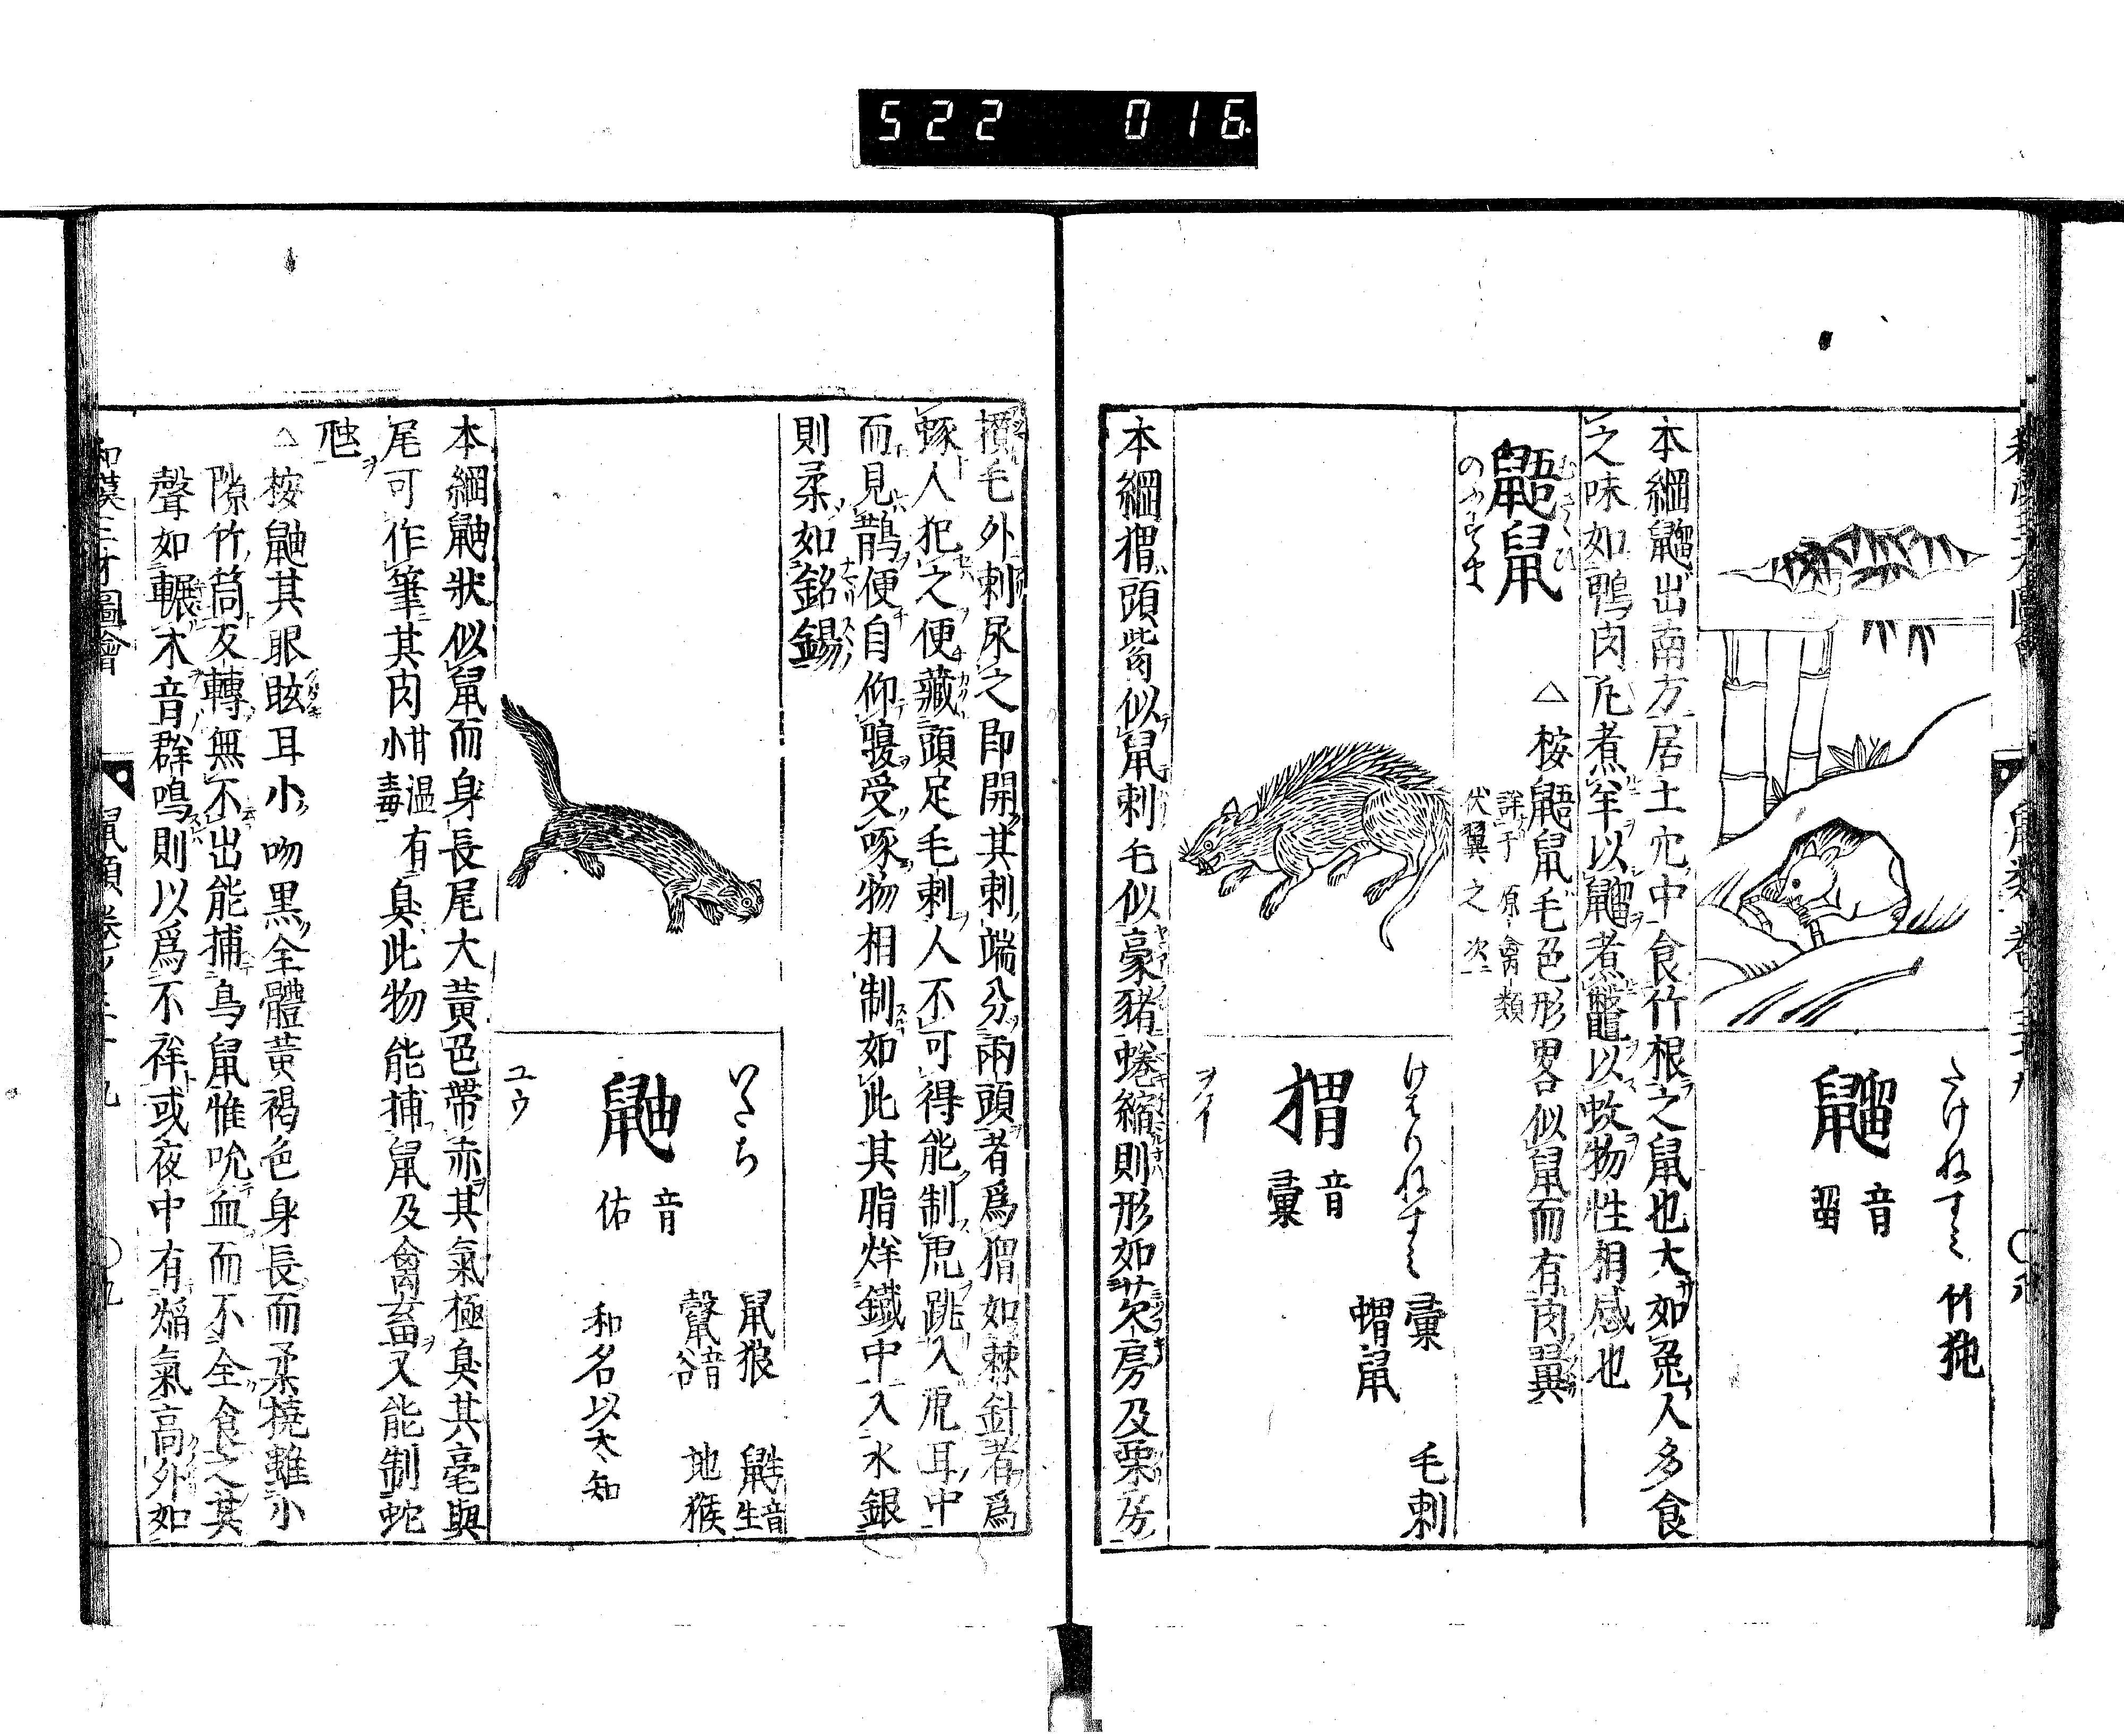 522 016
和漢三才圖會 鼠類 卷ノ三十九 〇九
たけねすミ 竹㹠
鼺 音留
本綱鼺出南方居土穴中食竹根之鼠也大如兔人多食
之味如鴨肉凡煮羊以鼺煮鼈以蚊物性相感也
鼯鼠
△按鼯鼠毛色形畧似鼠而有肉翼
詳于原禽類
伏翼之次
けはりねすミ 彙 毛刺
蝟鼠
猬 音彙
ヲイ
本綱猬頭觜似鼠刺毛似豪豬蜷縮則形如芡房及栗房
攢毛外刺尿之即開其刺端分兩頭者爲猬如棘針者爲
䖶人犯之便藏頭足毛刺人不可得能制虎跳入虎耳中
而見鵲便自仰腹受啄物相制如此其脂烊鐵中入水銀
則柔如鉛錫
いたち 鼠狼 鼪音生
鼬 音佑
地猴
和名以太知
ユウ
本綱鼬狀似鼠而身長尾大黃色帶赤其氣極臭其毫與
尾可作筆其肉甘溫小毒有臭此物能捕鼠及禽畜又能制蛇
虺
△按鼬其眼眩耳小吻黑全體黃褐色身長而柔撓雖小
隙竹筒反轉無不出能捕鳥鼠惟吮血而不全食之其
聲如輾木音群鳴則以爲不祥或夜中有焰氣高外如
和漢三才圖會 鼠類 卷ノ三十九 〇九